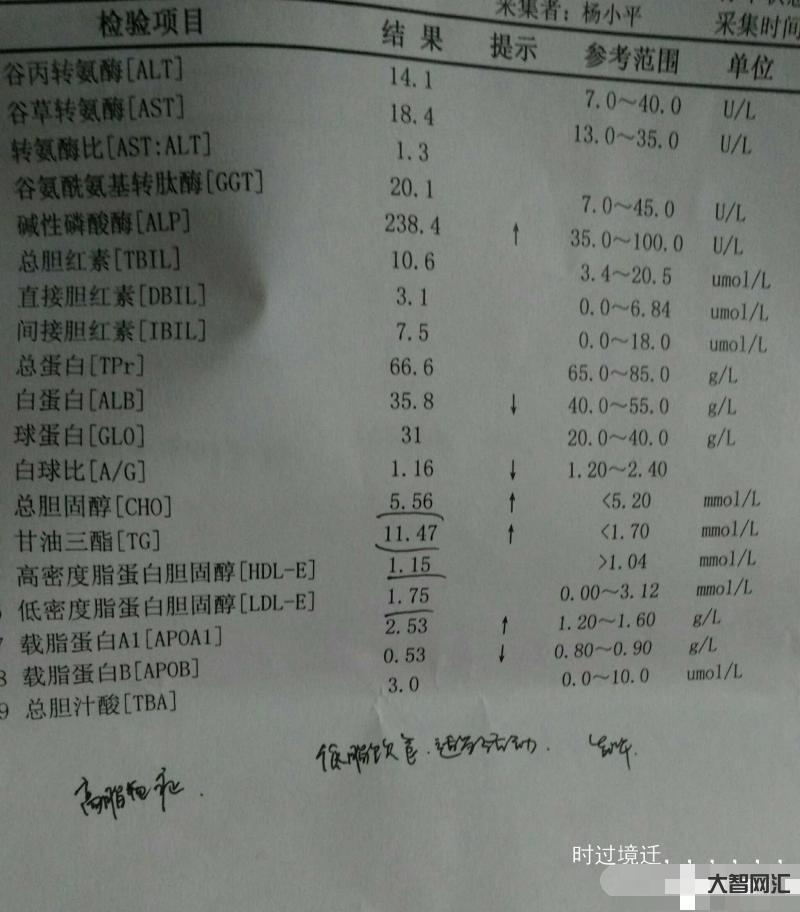 采集者：杨小平
采集时间
检验项目 结果 提示 参考范围 单位
谷丙转氨酶[ALT] 14.1 7.0～40.0 U/L
谷草转氨酶[AST] 18.4 13.0～35.0 U/L
转氨酶比[AST:ALT] 1.3
谷氨酰氨基转肽酶[GGT] 20.1 7.0～45.0 U/L
碱性磷酸酶[ALP] 238.4 ↑ 35.0～100.0 U/L
总胆红素[TBIL] 10.6 3.4～20.5 umol/L
直接胆红素[DBIL] 3.1 0.0～6.84 umol/L
间接胆红素[IBIL] 7.5 0.0～18.0 umol/L
总蛋白[TPr] 66.6 65.0～85.0 g/L
白蛋白[ALB] 35.8 ↓ 40.0～55.0 g/L
球蛋白[GLO] 31 20.0～40.0 g/L
白球比[A/G] 1.16 ↓ 1.20～2.40
总胆固醇[CHO] 5.56 ↑ <5.20 mmol/L
甘油三酯[TG] 11.47 ↑ <1.70 mmol/L
高密度脂蛋白胆固醇[HDL-E] 1.15 >1.04 mmol/L
低密度脂蛋白胆固醇[LDL-E] 1.75 0.00～3.12 mmol/L
7 载脂蛋白A1[APOA1] 2.53 ↑ 1.20～1.60 g/L
8 载脂蛋白B[APOB] 0.53 ↓ 0.80～0.90 g/L
9 总胆汁酸[TBA] 3.0 0.0～10.0 umol/L
低脂饮食.适当活动.
高脂血症.
时过境迁，，，，，，
大智网汇